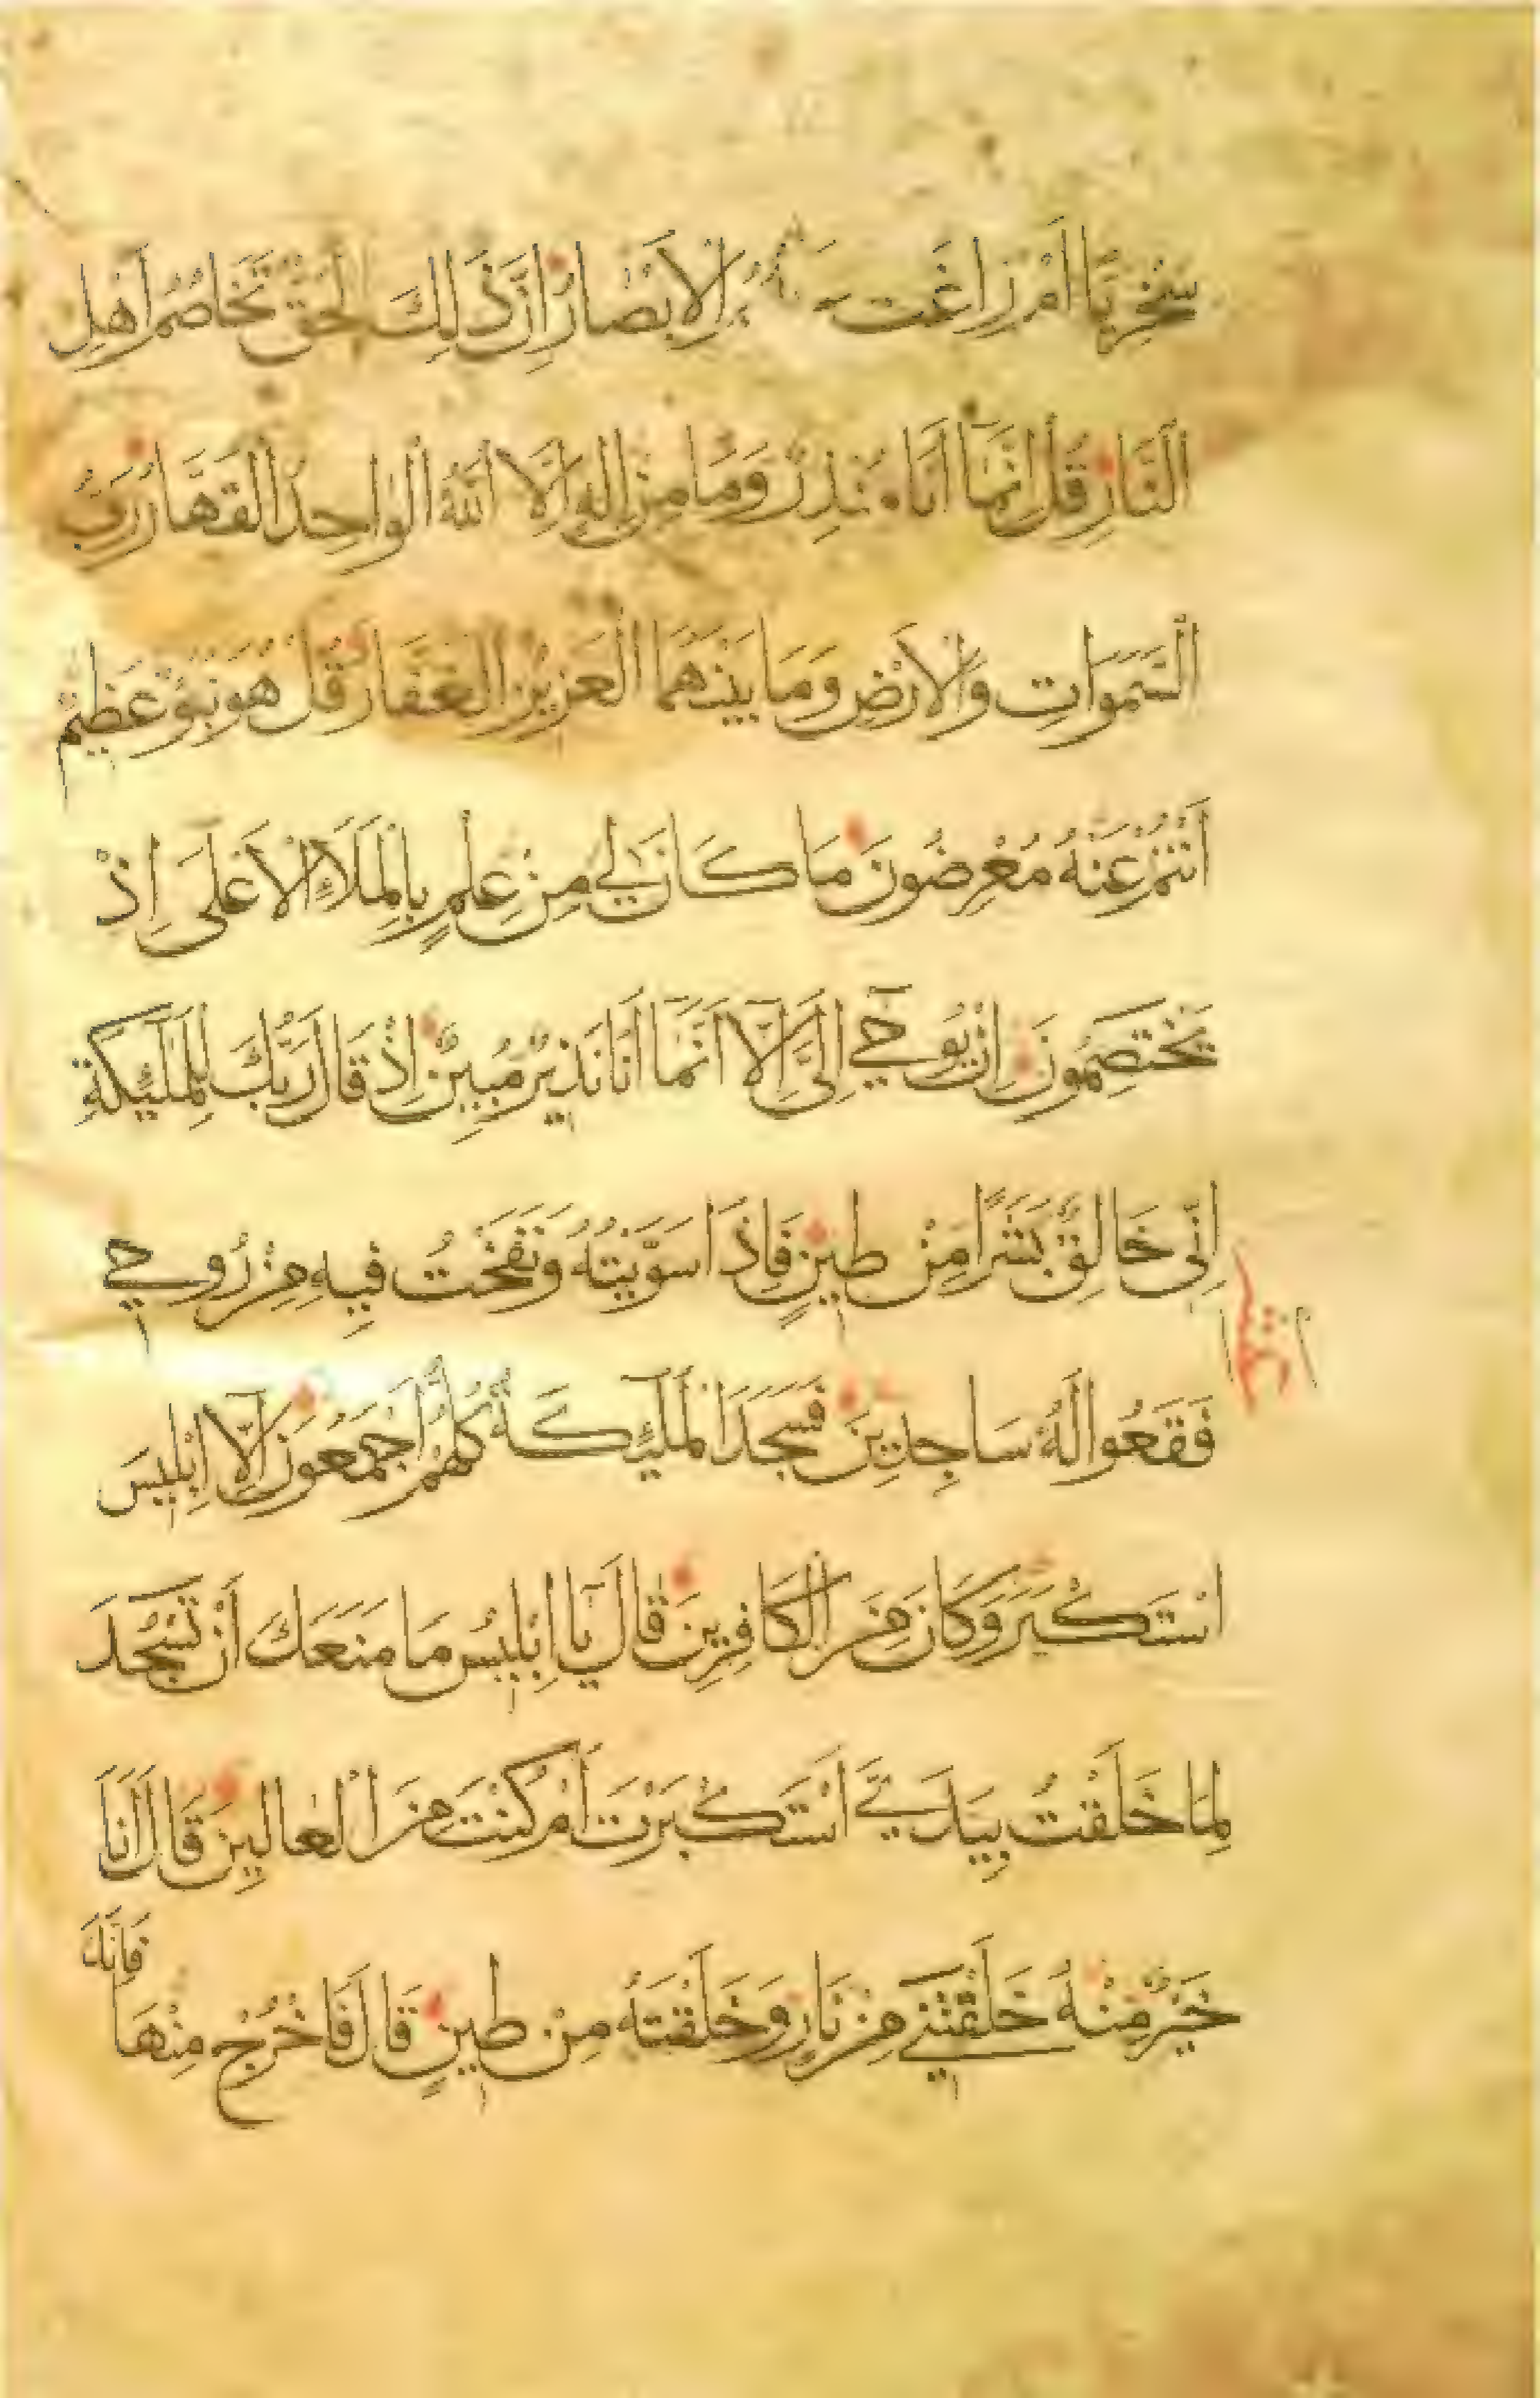 سِخْرِيًّا أَمْ زَاغَتْ الْأَبْصَارُ إِنَّ ذَلِكَ لَحَقٌّ تَخَاصُمُ أَهْلِ
النَّارِ قُلْ إِنَّمَا أَنَا مُنْذِرٌ وَمَا مِنْ إِلَهٍ إِلَّا اللَّهُ الْوَاحِدُ الْقَهَّارُ رَبُّ
السَّمَوَاتِ وَالْأَرْضِ وَمَا بَيْنَهُمَا الْعَزِيزُ الْغَفَّارُ قُلْ هُوَ نَبَؤٌ عَظِيمٌ
أَنْتُمْ عَنْهُ مُعْرِضُونَ مَا كَانَ لِي مِنْ عِلْمٍ بِالْمَلَإِ الْأَعْلَى إِذْ
يَخْتَصِمُونَ إِنْ يُوحَى إِلَيَّ إِلَّا أَنَّمَا أَنَا نَذِيرٌ مُبِينٌ إِذْ قَالَ رَبُّكَ لِلْمَلَئِكَةِ
إِنِّي خَالِقٌ بَشَرًا مِنْ طِينٍ فَإِذَا سَوَّيْتُهُ وَنَفَخْتُ فِيهِ مِنْ رُوحِي
فَقَعُوا لَهُ سَاجِدِينَ فَسَجَدَ الْمَلَئِكَةُ كُلُّهُمْ أَجْمَعُونَ إِلَّا إِبْلِيسَ
اسْتَكْبَرَ وَكَانَ مِنَ الْكَافِرِينَ قَالَ يَا إِبْلِيسُ مَا مَنَعَكَ أَنْ تَسْجُدَ
لِمَا خَلَقْتُ بِيَدَيَّ أَسْتَكْبَرْتَ أَمْ كُنْتَ مِنَ الْعَالِينَ قَالَ أَنَا
خَيْرٌ مِنْهُ خَلَقْتَنِي مِنْ نَارٍ وَخَلَقْتَهُ مِنْ طِينٍ قَالَ فَاخْرُجْ مِنْهَا
فَإِنَّكَ